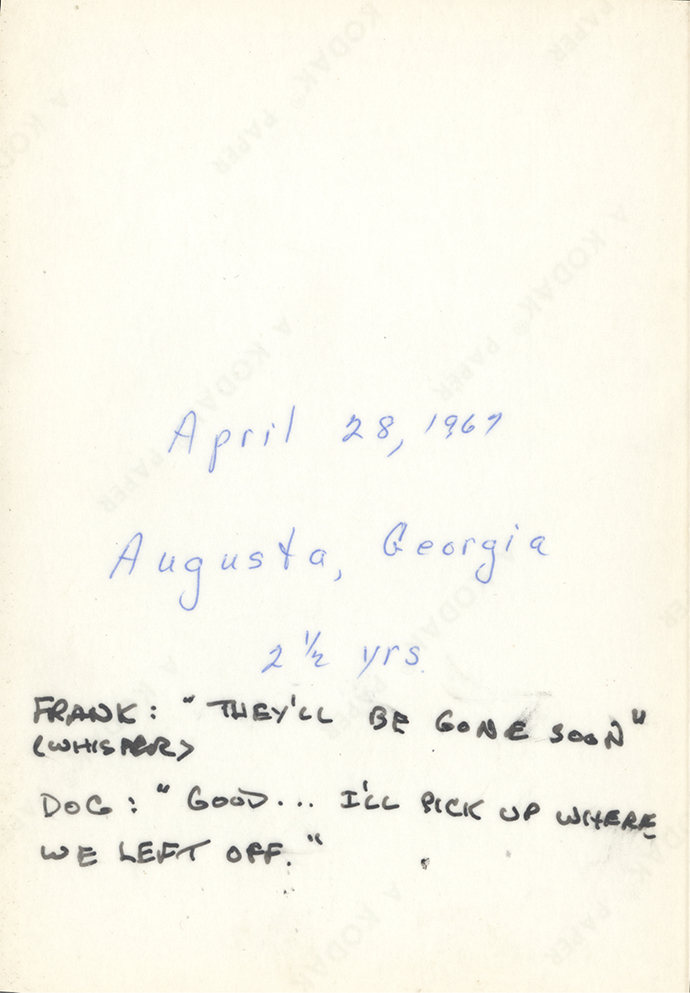 April 28, 1967
Augusta, Georgia
2 ½ yrs.
FRANK: "THEY'LL BE GONE SOON"
(WHISPER)
DOG: "GOOD... I'LL PICK UP WHERE
WE LEFT OFF."
A KODAK PAPER
A KODAK PAPER
A KODAK PAPER